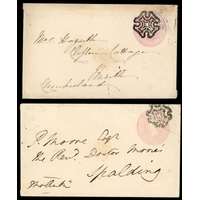 Mrs Hogarth
Clifton Cottage
Cumberland
P. Moore Esqr
the Revd. Doctor Moore
Spalding